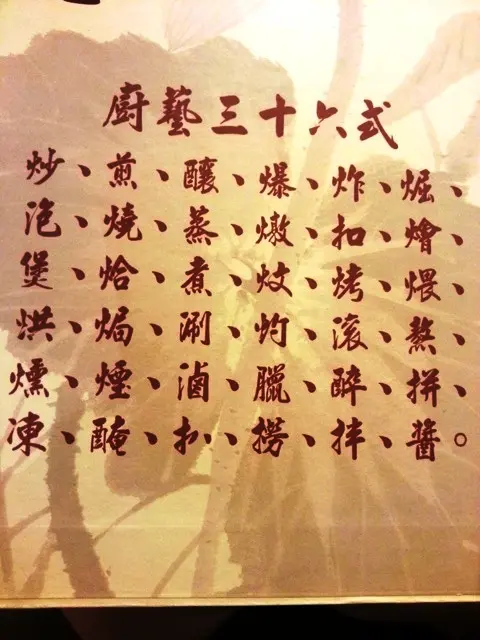 廚藝三十六式
炒、煎、釀、爆、炸、、
泡、燒、蒸、燉、扣、燴、
煲、烚、煮、炆、烤、煨、
烘、焗、涮、灼、滾、熬、
燻、煙、滷、臘、醉、拼、
凍、醃、扒、撈、拌、醬。